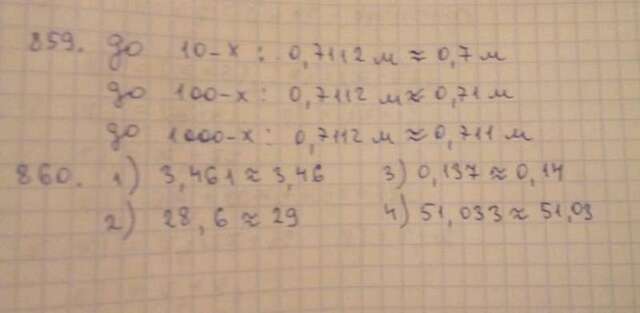 859. до 10-х: 0,7112 м ≈ 0,7 м
до 100-х: 0,7112 м ≈ 0,71 м
до 1000-х: 0,7112 м ≈ 0,711 м
860. 1) 3,461 ≈ 3,46 3) 0,137 ≈ 0,14
2) 28,6 ≈ 29 4) 51,033 ≈ 51,03